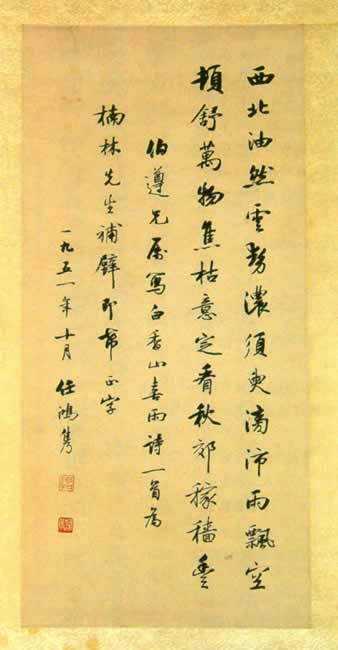 西北油然雲勢濃須臾滂沛雨飄空
頓舒萬物焦枯意定看秋郊稼穡豐
伯遵兄屬寫白香山喜雨詩一首為
楠林先生補壁即希正字
一九五一年十月任鴻雋